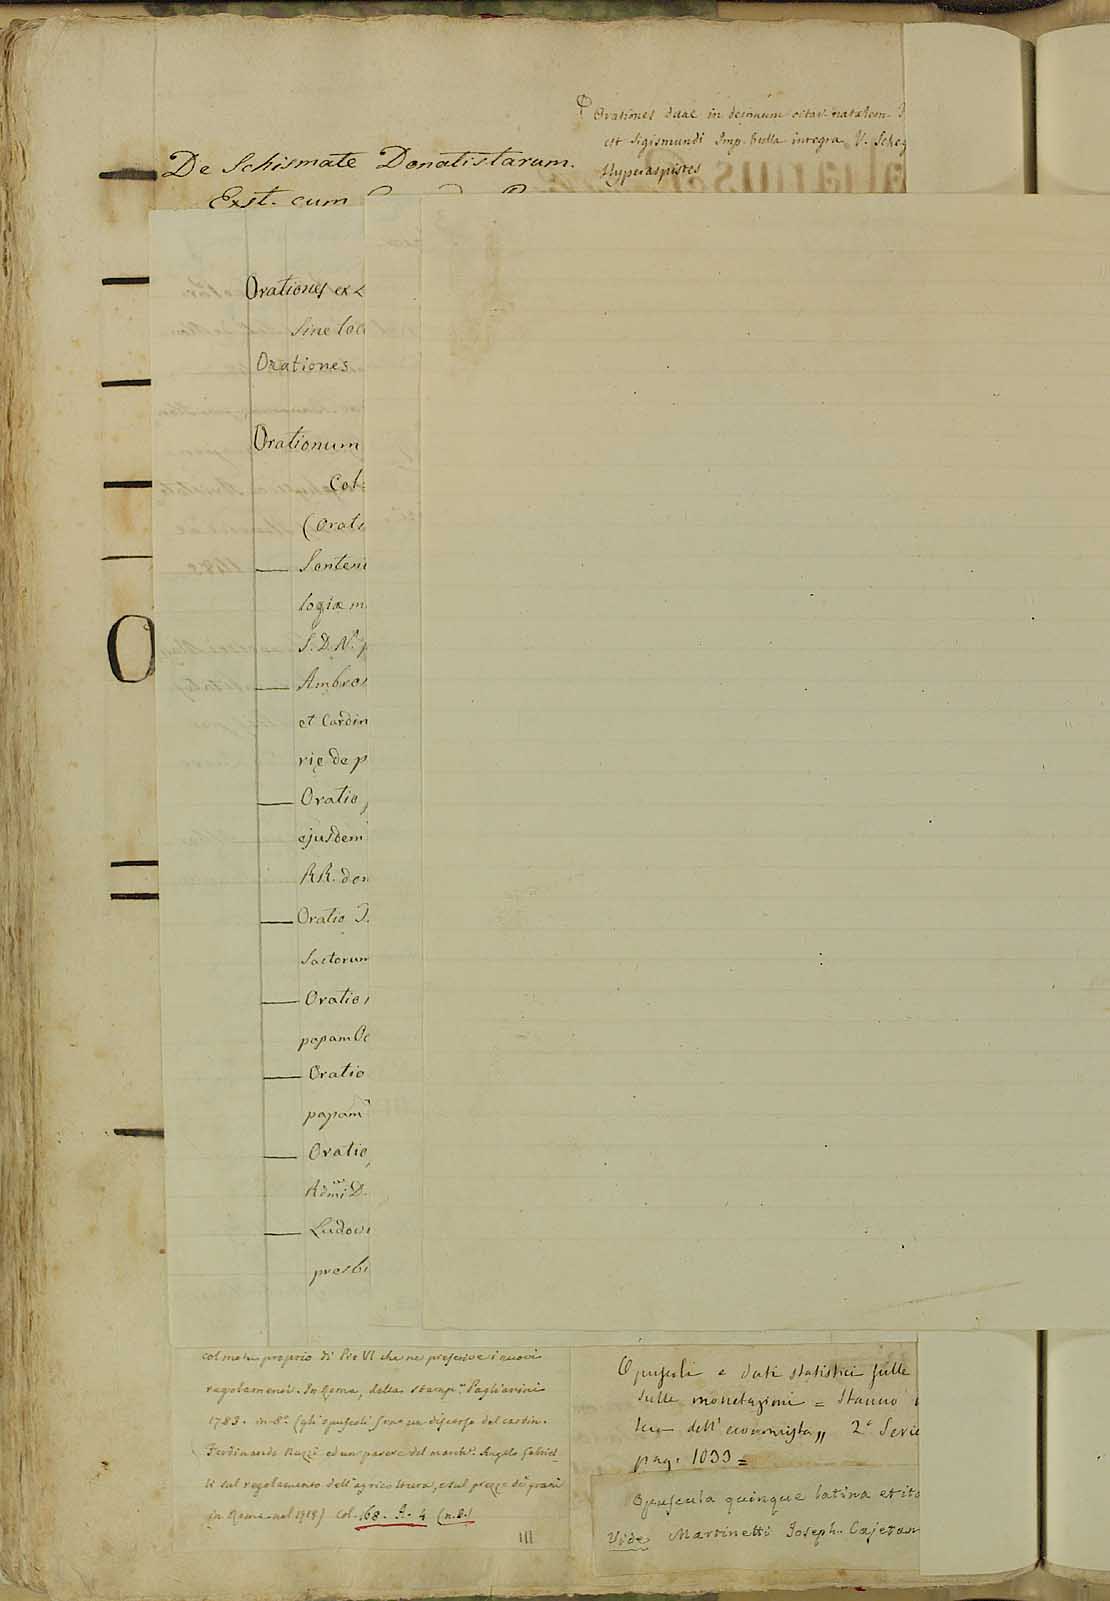 Orationes duae in decimum octav. natalem
est Sigismundi Imp. bulla integra V. Scheg
Hyperaspistes
De Schismate Donatistarum.
Exst. cum
Orationes ex
Sine loc
Orationes
Orationum
Col
(Orat
Senten
logiæ m
S. D. N.
Ambros
et Cardin
rię de p
Oratio
ejusdem
RR. de
Oratio
factorum
Oratio
papam
Oratio
papam
Oratio
Admi D.
Ludovi
presbi
O
col motu proprio di Pio VI che ne prescrive i nuovi
regolamenti. In Roma, dalla stamp.ª Pagliarini
1783. in 8.º (gli opuscoli sono un discorso del cardin.
Ferdinando Nuzzi ed un parere del march.e Angelo Gabriel-
li sul regolamento dell'agricoltura, e sul prezzo de' grani
in Roma nel 1718) col. 168. A. 4 (n.8.)
III
Opuscoli e dati statistici sulle
sulle monetazioni = Stanno
teca dell'economista,, 2ª Serie
pag. 1033 =
Opuscula quinque latina et ita
Vide Martinetti Joseph. Cajetan